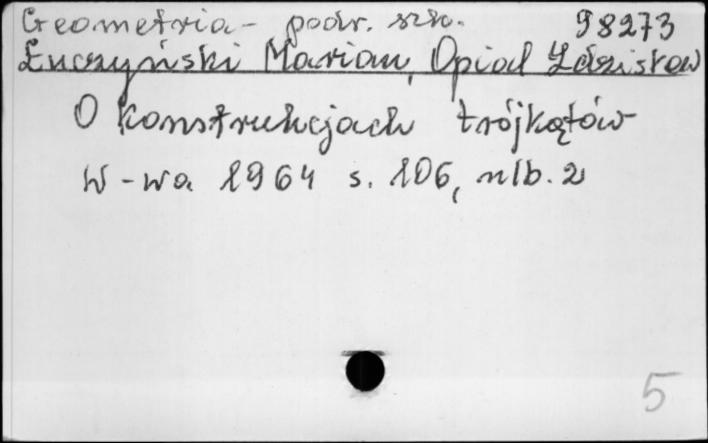 Geometria - podr. szk. 98273
Łuczyński Marian, Opial Zdzisław
O konstrukcjach trójkątów
W-wa 1964 s. 106, nlb. 2
5